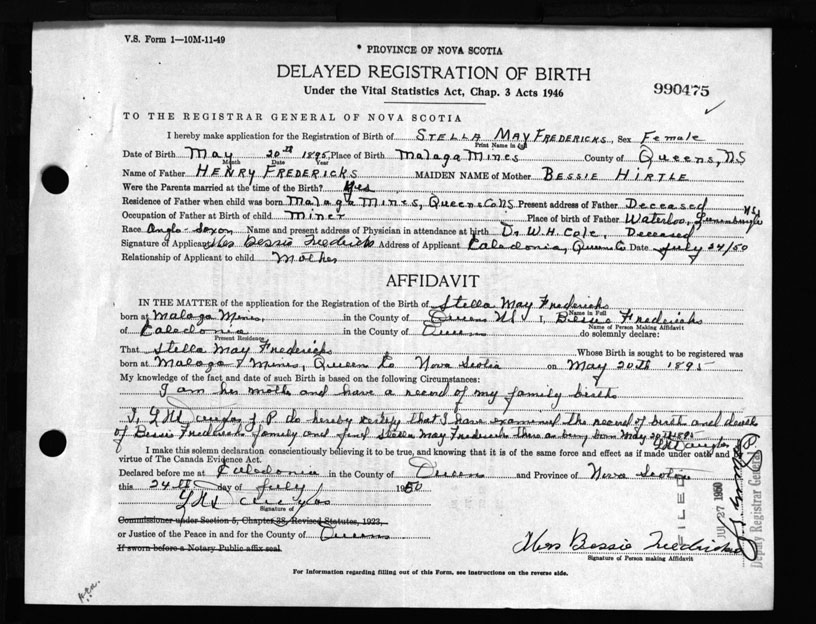 V.S. Form 1—10M-11-49
PROVINCE OF NOVA SCOTIA
DELAYED REGISTRATION OF BIRTH
Under the Vital Statistics Act, Chap. 3 Acts 1946
990475
TO THE REGISTRAR GENERAL OF NOVA SCOTIA
I hereby make application for the Registration of Birth of STELLA MAY FREDERICKS, Sex Female
Print Name in full
Date of Birth May 20th 1895, Place of Birth Malaga Mines County of Queens, NS
Month Date Year
Name of Father HENRY FREDERICKS MAIDEN NAME of Mother BESSIE HIRTLE
Were the Parents married at the time of the Birth? Yes
Residence of Father when child was born Malaga Mines, Queens Co NS. Present address of Father Deceased
Occupation of Father at Birth of child Miner Place of birth of Father Waterloo, Lunenburg Co NS
Race Anglo-Saxon Name and present address of Physician in attendance at birth Dr W.H. Cole, Deceased
Signature of Applicant Mrs Bessie Fredericks Address of Applicant Caledonia, Queens Co Date July 24/50
Relationship of Applicant to child Mother
AFFIDAVIT
IN THE MATTER of the application for the Registration of the Birth of Stella May Fredericks
Name in Full
born at Malaga Mines, in the County of Queens NS I, Bessie Fredericks
Name of Person Making Affidavit
of Caledonia in the County of Queens do solemnly declare:
Present Residence
That Stella May Fredericks Whose Birth is sought to be registered was
born at Malaga Mines, Queen Co Nova Scotia on May 20th 1895
My knowledge of the fact and date of such Birth is based on the following Circumstances:
I am her mother and have a record of my family births
I, J.P. do hereby certify that I have examined the record of births and deaths
of Bessie Fredericks family and find Stella May Fredericks there as being born May 20th 1895
I make this solemn declaration conscientiously believing it to be true, and knowing that it is of the same force and effect as if made under oath and by
virtue of The Canada Evidence Act.
Declared before me at Caledonia in the County of Queens and Province of Nova Scotia
this 24th day of July 1950
Signature of
Commissioner under Section 5, Chapter 38, Revised Statutes, 1923,
or Justice of the Peace in and for the County of Queens
If sworn before a Notary Public affix seal.
Mrs Bessie Fredericks
Signature of Person making Affidavit
FILED
JUL 27 1950
Deputy Registrar General
For Information regarding filling out of this Form, see instructions on the reverse side.